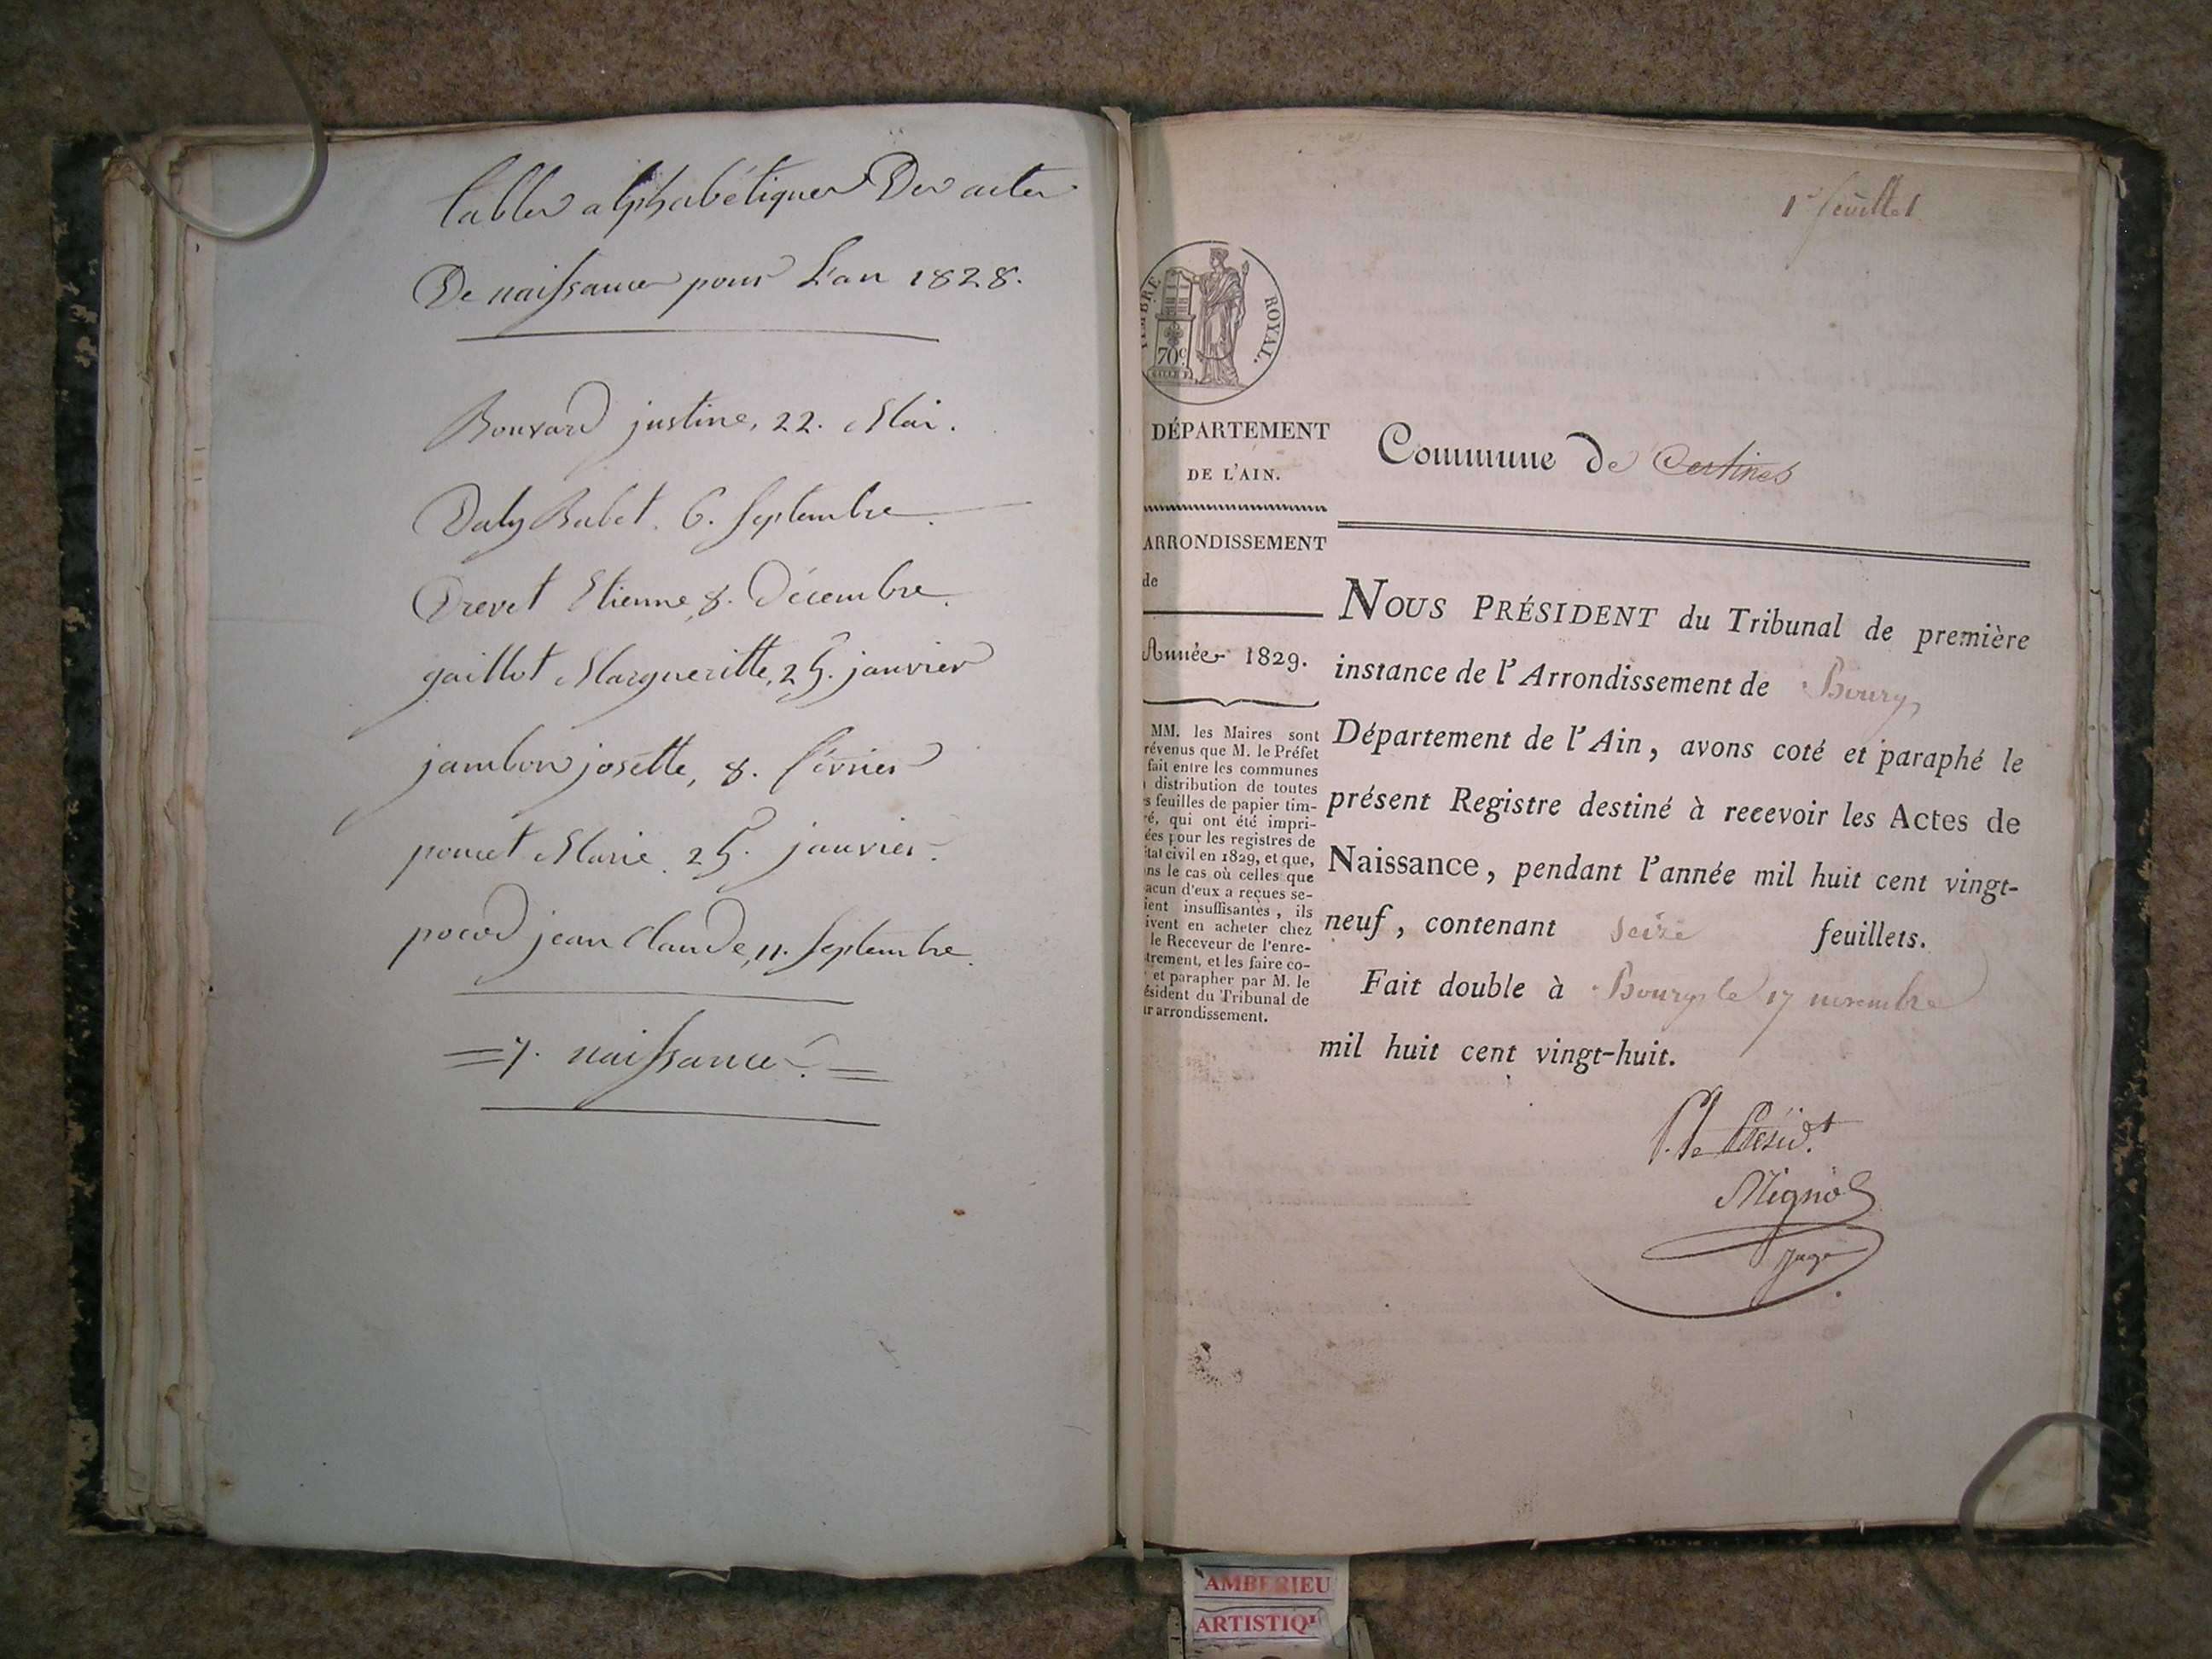 tables alphabétiques Des actes
De naissance pour L'an 1828.
Bouvard justine, 22. Mai.
Daly Babet. 6. Septembre.
Drevet Etienne, 8. Décembre.
gaillot Margueritte, 25. janvier
jambon josette, 8. février
poncet Marie. 25. janvier.
pocod jean Claude, 11. Septembre.
=7. naissance. =
1er feuillet
TIMBRE ROYAL.
70c.
DÉPARTEMENT
DE L'AIN.
Commune de Certines
ARRONDISSEMENT
de
Année 1829.
MM. les Maires sont
révenus que M. le Préfet
fait entre les communes
distribution de toutes
s feuilles de papier tim-
ré, qui ont été impri-
ées pour les registres de
état civil en 1829, et que,
ns le cas où celles que
acun d'eux a reçues se-
ient insuffisantes, ils
ivent en acheter chez
le Receveur de l'enre-
trement, et les faire co-
et parapher par M. le
ésident du Tribunal de
ur arrondissement.
NOUS PRÉSIDENT du Tribunal de première
instance de l'Arrondissement de Bourg
Département de l'Ain, avons coté et paraphé le
présent Registre destiné à recevoir les Actes de
Naissance, pendant l'année mil huit cent vingt-
neuf, contenant seize feuillets.
Fait double à Bourg le 17 novembre
mil huit cent vingt-huit.
P. le Présidt.
Mignot
juge
AMBERIEU
ARTISTIQU